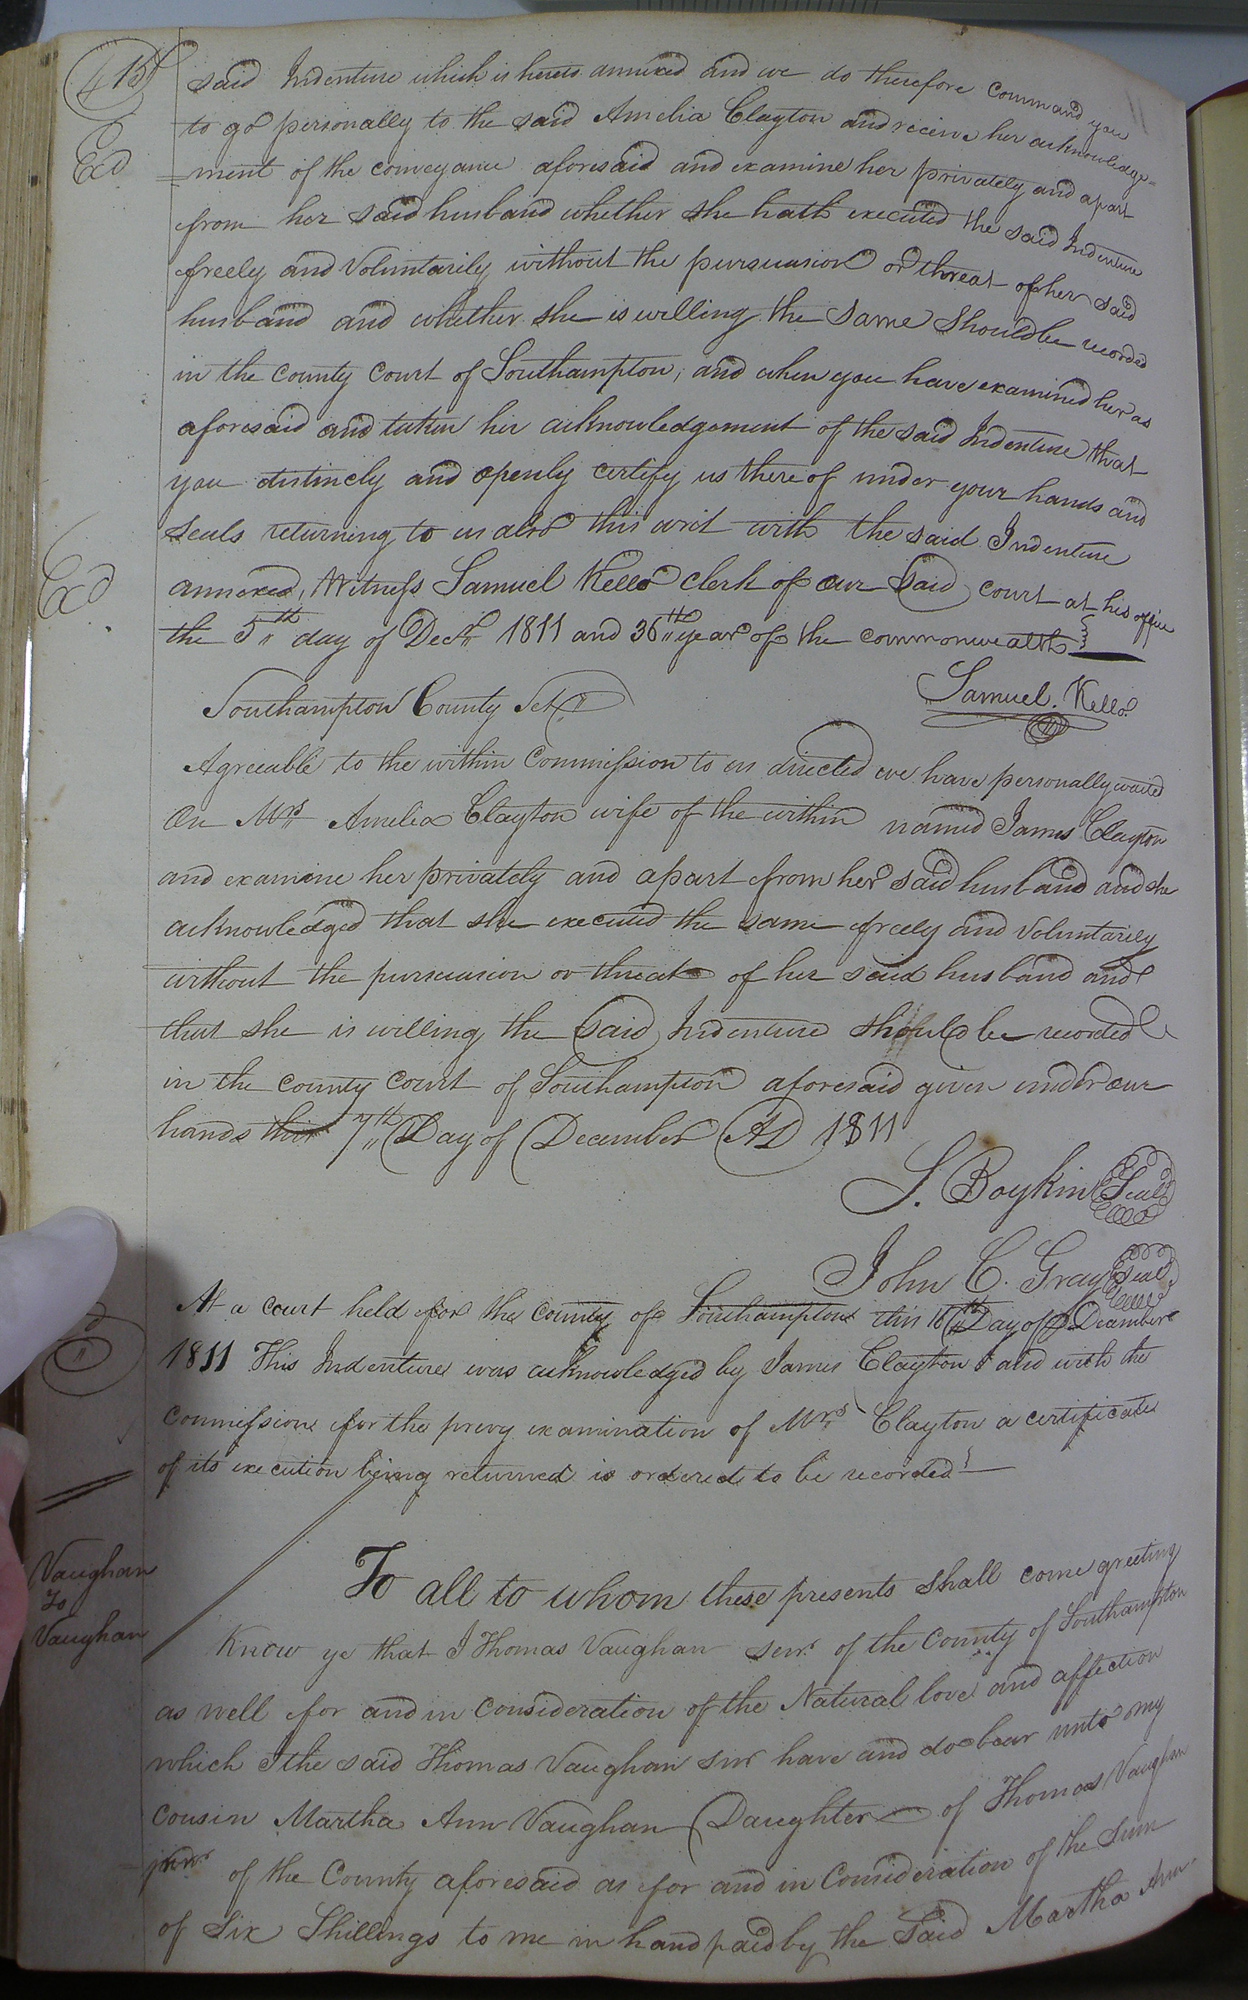 415
said Indenture which is hereto annexed and we do therefore command you
to go personally to the said Amelia Clayton and receive her acknowledge-
Exd
=ment of the conveyance aforesaid and examine her privately and apart
from her said husband whether she hath executed the said Indenture
freely and Voluntarily without the pursuasion or threat of her said
husband and whether she is willing the same should be recorded
in the county court of Southampton, and when you have examined her as
aforesaid and taken her acknowledgement of the said Indenture that
you distincly and openly certify us there of under your hands and
seals returning to us also this writ with the said Indenture
Exd
annexed, Witness Samuel Kello clerk of our said court at his office
the 5th day of Decr 1811 and 36th year of the commonwealth
Samuel. Kello
Southampton County Sct
Agreeable to the within Commission to us directed we have personally waited
On Mrs Amelia Clayton wife of the within named James Clayton
and examine her privately and apart from her said husband and she
acknowledged that she executed the same freely and Voluntarily
without the pursuasion or threat of her said husband and
that she is willing the said Indenture should be recorded
in the county court of Southampton aforesaid given under our
hands this 7th Day of December AD 1811
S. Boykin Seal
John C. Gray Seal
At a court held for the county of Southampton this 16th Day of December
1811 This Indenture was acknowledged by James Clayton & and with the
Commission for the prevy examination of Mrs Clayton a certificate
of its execution being returned is ordered to be recorded
Vaughan
To
Vaughan
To all to whom these presents shall come greeting
Know ye that I Thomas Vaughan senr. of the County of Southampton
as well for and in Consideration of the Natural love and affection
which I the said Thomas Vaughan snr have and do bear unto my
Cousin Martha Ann Vaughan Daughter of Thomas Vaughan
junr of the County aforesaid as for and in Consideration of the Sum
of Six Shillings to me in hand paid by the Said Martha Ann